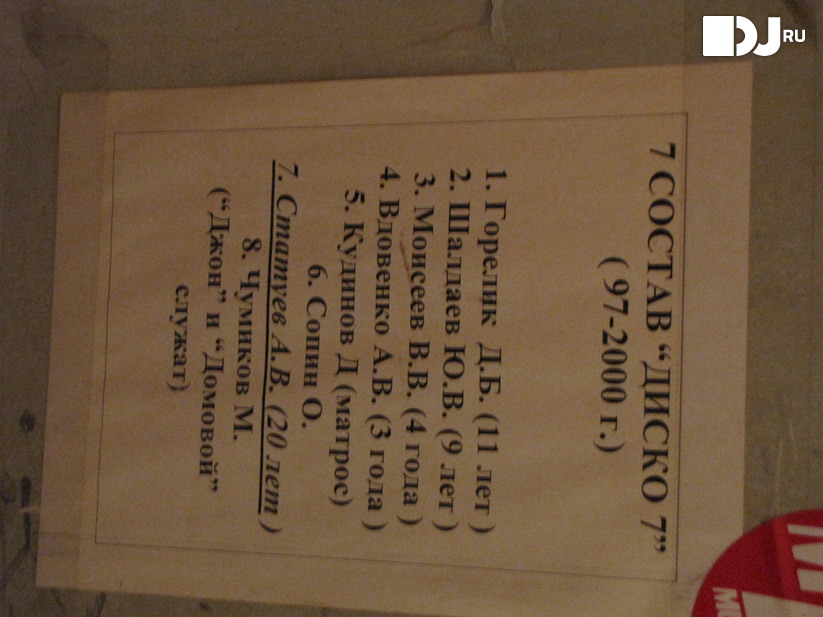 DJ RU
7 СОСТАВ “ДИСКО 7”
( 97-2000 г.)
1. Горелик Д.Б. (11 лет )
2. Шалдаев Ю.В. (9 лет )
3. Моисеев В.В. (4 года )
4. Вдовенко А.В. (3 года )
5. Кудинов Д (матрос)
6. Сопин О.
7. Статуев А.В. (20 лет )
8. Чумиков М.
(“Джон” и “Домовой”
служат)